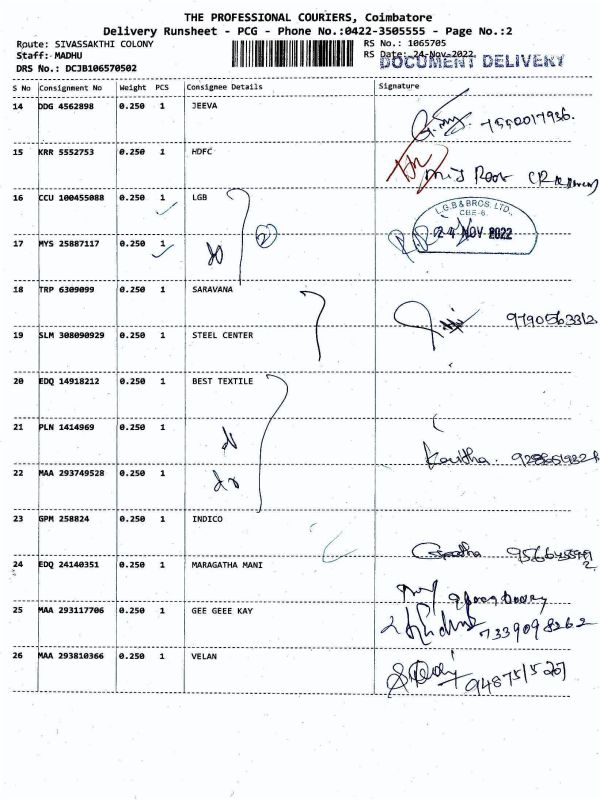 THE PROFESSIONAL COURIERS, Coimbatore
Delivery Runsheet - PCG - Phone No.:0422-3505555 - Page No.:2
Route: SIVASSAKTHI COLONY RS No.: 1065705
Staff: MADHU RS Date: 24-Nov-2022
DRS No.: DCJB106570502 DOCUMENT DELIVERY
S No Consignment No Weight PCS Consignee Details Signature
14 DDG 4562898 0.250 1 JEEVA
15 KRR 5552753 0.250 1 HDFC
16 CCU 100455088 0.250 1 LGB
L.G.B & BROS. LTD.,
CBE-6.
17 MYS 25887117 0.250 1 2 24 NOV 2022
18 TRP 6309099 0.250 1 SARAVANA
9790563312
19 SLM 308090929 0.250 1 STEEL CENTER
20 EDQ 14918212 0.250 1 BEST TEXTILE
21 PLN 1414969 0.250 1
Kavitha.
22 MAA 293749528 0.250 1
23 GPM 258824 0.250 1 INDICO
24 EDQ 24140351 0.250 1 MARAGATHA MANI
25 MAA 293117706 0.250 1 GEE GEEE KAY
7339098262
26 MAA 293810366 0.250 1 VELAN